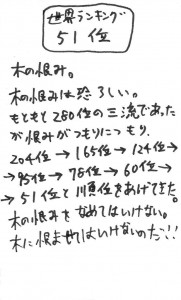 世界ランキング
51位
木の恨み。
木の恨みは恐ろしい。
もともと280位の三流であった
が恨みがつもりにつもり、
204位→165位→124位→
→95位→78位→60位→
→51位と順位をあげてきた。
木の恨みをなめてはいけない。
木に恨ませてはいけないのだ!!